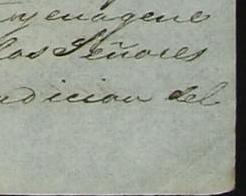 y enagene
los Señores
dicion del